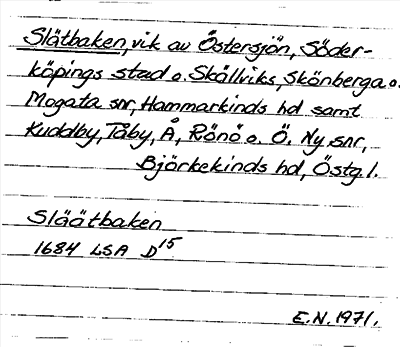 Slätbaken, vik av Östersjön, Söder-
köpings stad o. Skällviks, Skönberga o.
Mogata snr, Hammarkinds hd samt
Kuddby, Tåby, Å, Rönö o. Ö. Ny snr,
Björkekinds hd, Östg. l.
Släätbaken
1684 LSA D15
E.N. 1971.